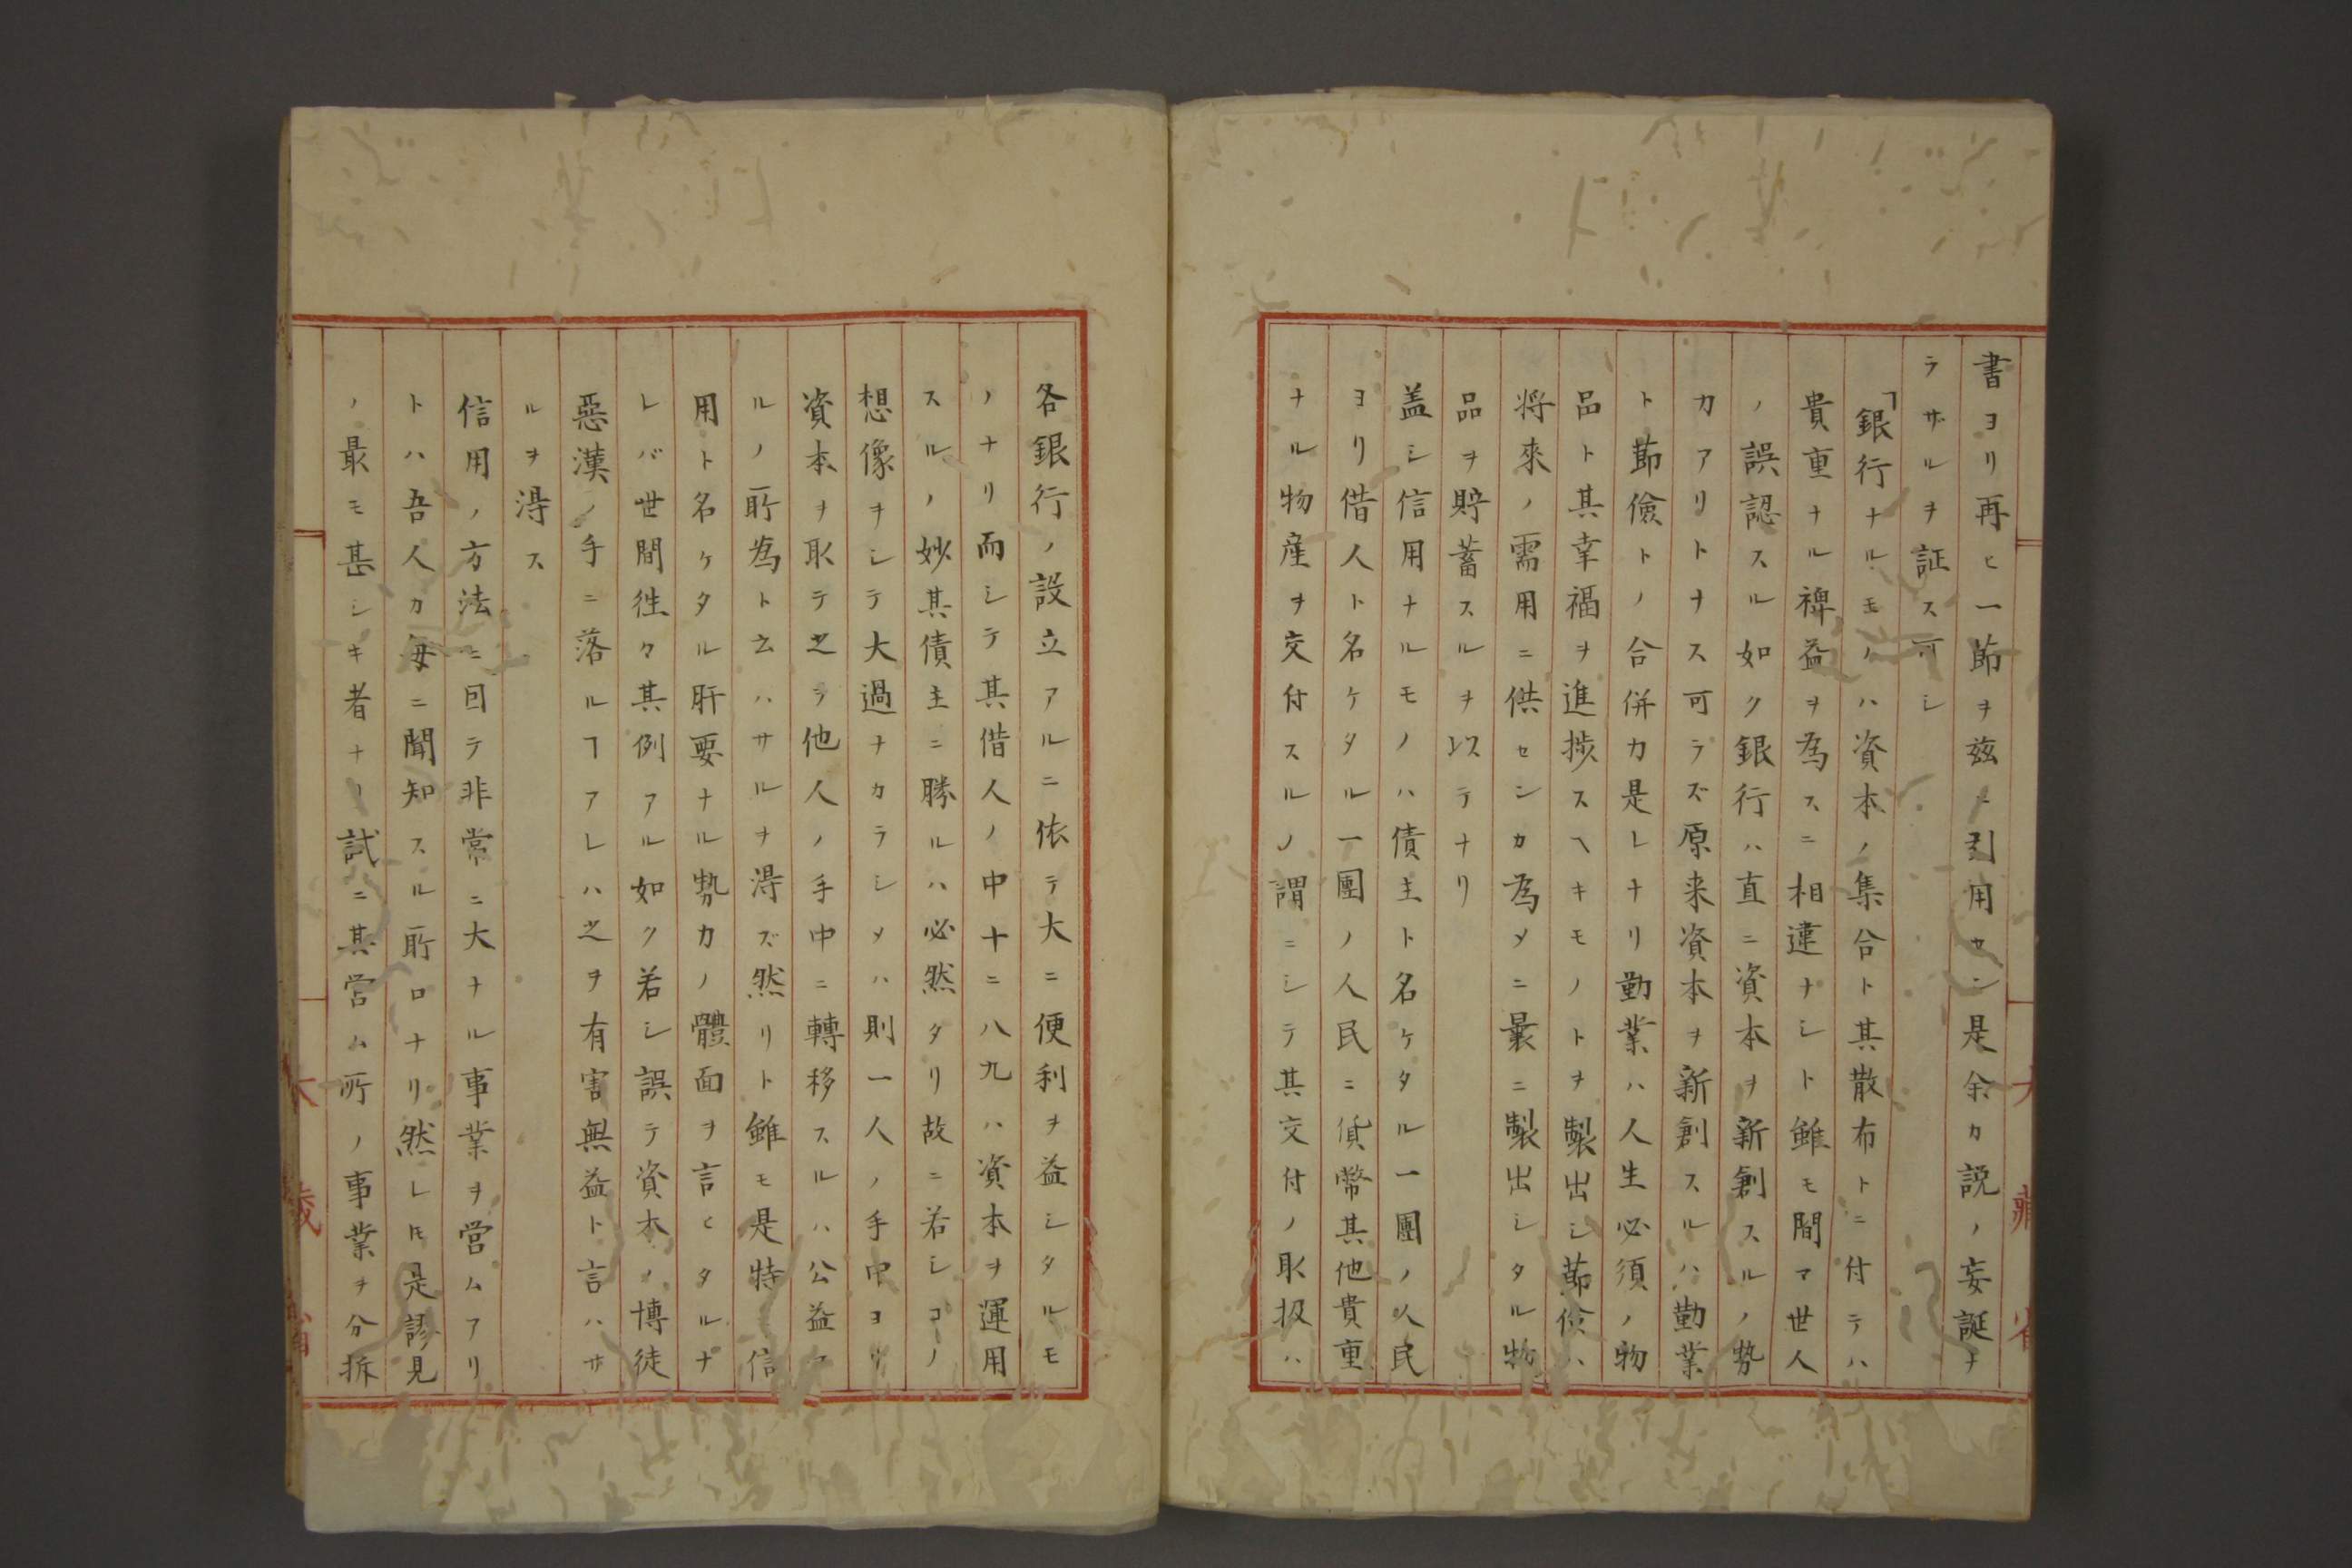 書ヨリ再ヒ一節ヲ玆ニ引用セン是余カ説ノ妄誕ナ
ラザルヲ証ス可シ
「銀行ナルモノハ資本ノ集合ト其散布トニ付テハ
貴重ナル裨益ヲ為スニ相違ナシト雖モ間マ世人
ノ誤認スル如ク銀行ハ直ニ資本ヲ新創スルノ勢
力アリトナス可ラズ原来資本ヲ新創スルハ勤業
ト節儉トノ合併力是レナリ勤業ハ人生必須ノ物
品ト其幸福ヲ進捗スヘキモノトヲ製出シ節儉ハ
将來ノ需用ニ供センカ為メニ曩ニ製出シタル物
品ヲ貯蓄スルヲ以テナリ
盖シ信用ナルモノハ債主ト名ケタル一團ノ人民
ヨリ借人ト名ケタル一團ノ人民ニ貨幣其他貴重
ナル物産ヲ交付スルノ謂ニシテ其交付ノ取扱ハ
大藏省
各銀行ノ設立アルニ依テ大ニ便利ヲ益シタルモ
ノナリ而シテ其借人ノ中十ニ八九ハ資本ヲ運用
スルノ妙其債主ニ勝ルハ必然タリ故ニ若シコノ
想像ヲシテ大過ナカラシメハ則一人ノ手中ヨリ
資本ヲ取テ之ヲ他人ノ手中ニ轉移スルハ公益ア
ルノ所為ト云ハサルヲ得ズ然リト雖モ是特信
用ト名ケタル肝要ナル勢力ノ體面ヲ言ヒタルナ
レバ世間徃々其例アル如ク若シ誤テ資本ノ博徒
惡漢ノ手ニ落ルヿアレハ之ヲ有害無益ト言ハサ
ルヲ得ス
信用ノ方法ニ因テ非常ニ大ナル事業ヲ営ムアリ
トハ吾人カ毎ニ聞知スル所ロナリ然レ𪜈是謬見
ノ最モ甚シキ者ナリ試ニ其営ム所ノ事業ヲ分拆